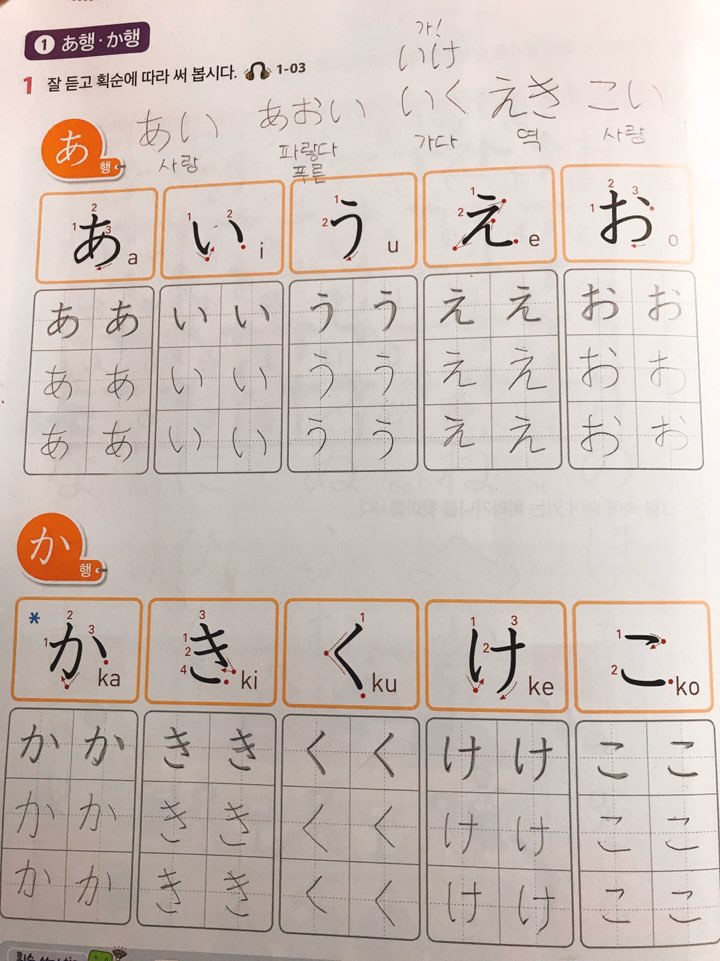 가!
いけ
1 あ행·か행
1 잘 듣고 획순에 따라 써 봅시다. 1-03
あい あおい いく えき こい
사랑 파랗다 가다 역 사랑
푸른
あ 행
あ a い i う u え e お o
ああ いい うう ええ おお
ああ いい うう ええ おお
ああ いい うう ええ おお
か 행
* か ka き ki く ku け ke こ ko
かか きき くく けけ ここ
かか きき くく けけ ここ
かか きき くく けけ ここ